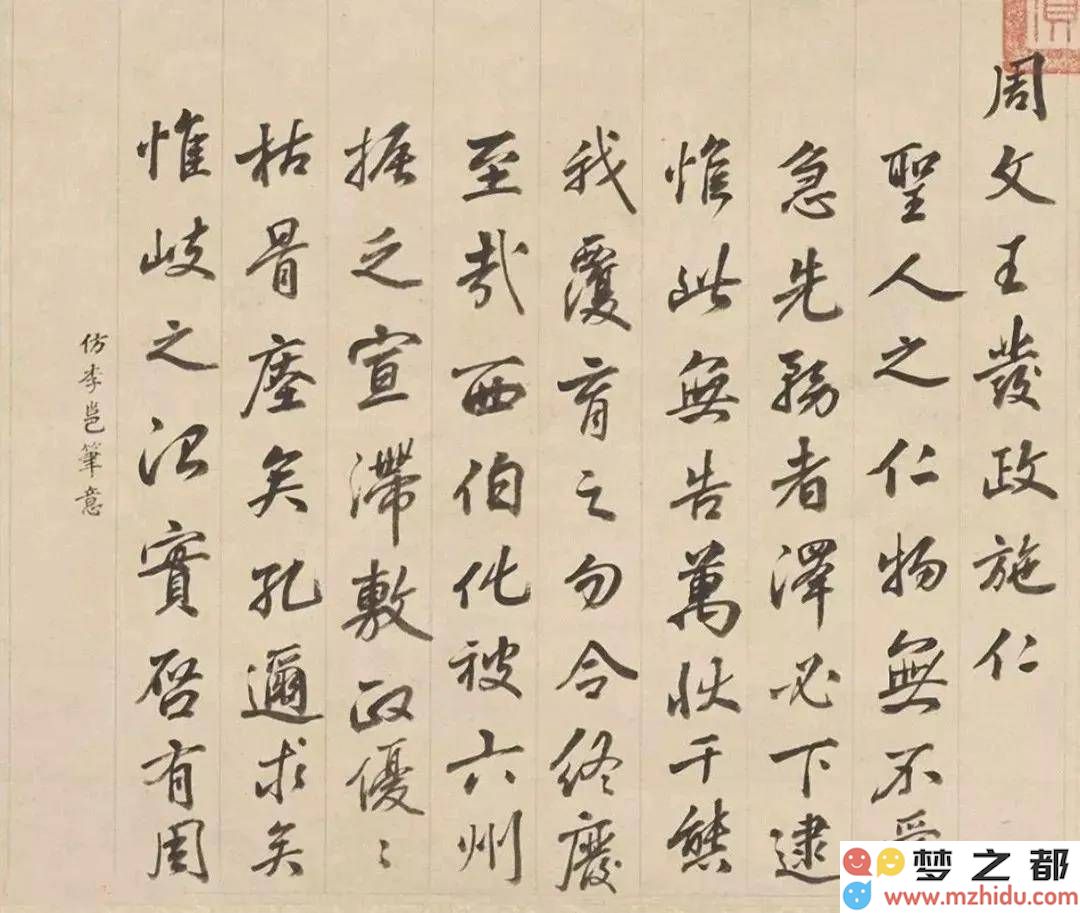 周文王發政施仁
聖人之仁物無不愛
急先務者澤必下逮
惟此無告萬狀千態
我覆育之勿令終廢
至哉西伯化被六州
振之宣滯敷政優〻
枯骨塵矣孔邇求矣
惟岐之治實啓有周
仿李邕筆意
梦之都
www.mzhidu.com